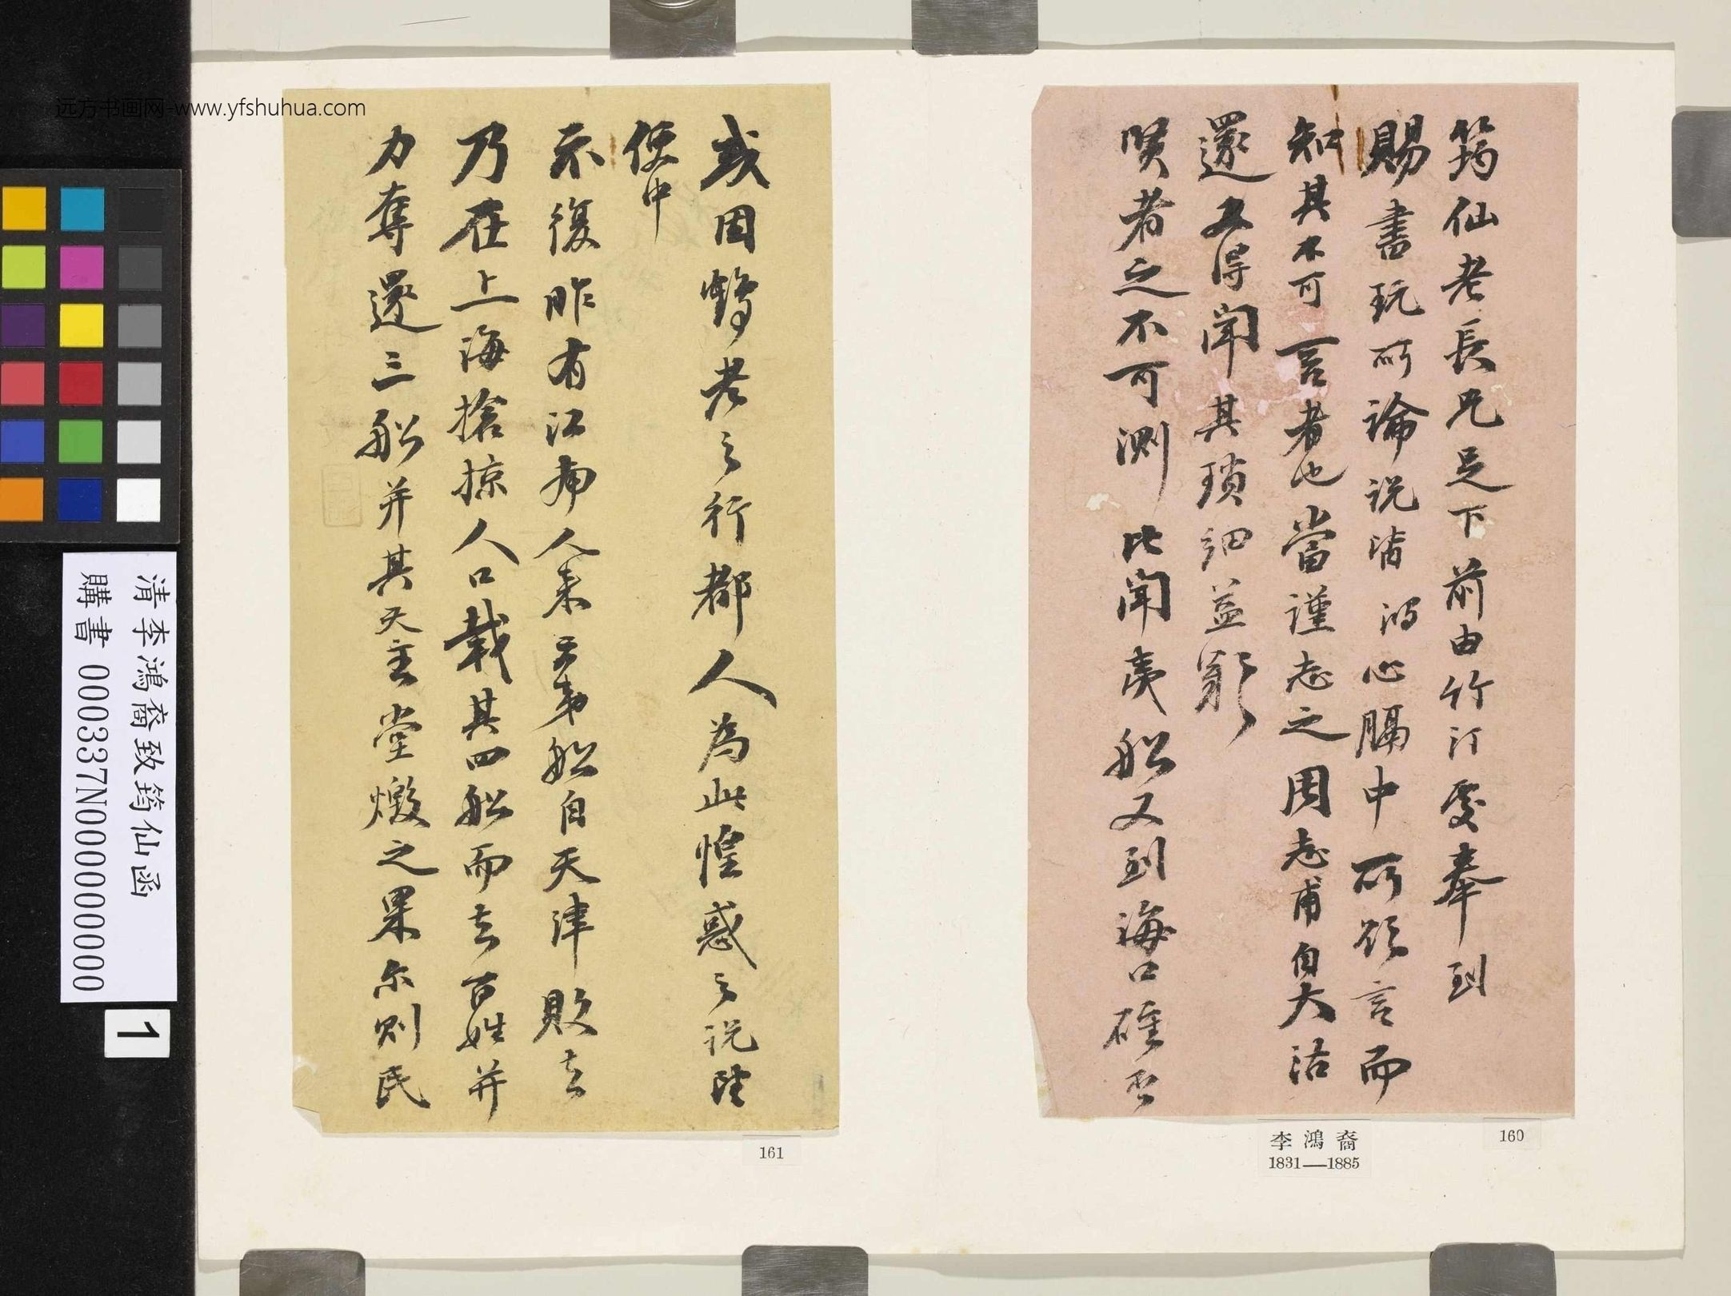 筠仙老長兄足下前由竹汀處奉到
賜書玩所論說清 心膈中所欲言而
知其不可言者也當謹志之周志甫自大沽
還又得聞其瑣細益
賢者之不可測比聞夷船又到海口碓否
或因鶴老之行都人為此惶惑之說望
便中
示復昨有江南人来云弟船自天津敗去
乃在上海搶掠人口載其四船而去百姓并
力奪還三船并其天主堂燬之果尔則民
李鴻裔
1831—1885
160
161
清李鴻裔致筠仙函
購書 000337N000000000
1
远方书画网-www.yfshuhua.com